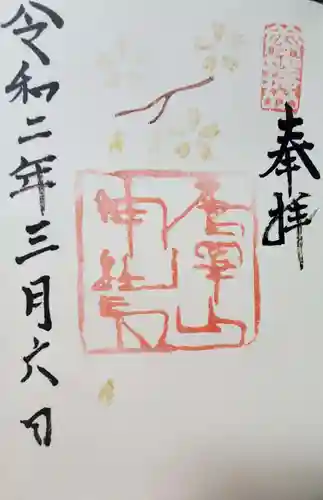 奉拝
唐澤山
神社
令和二年三月六日